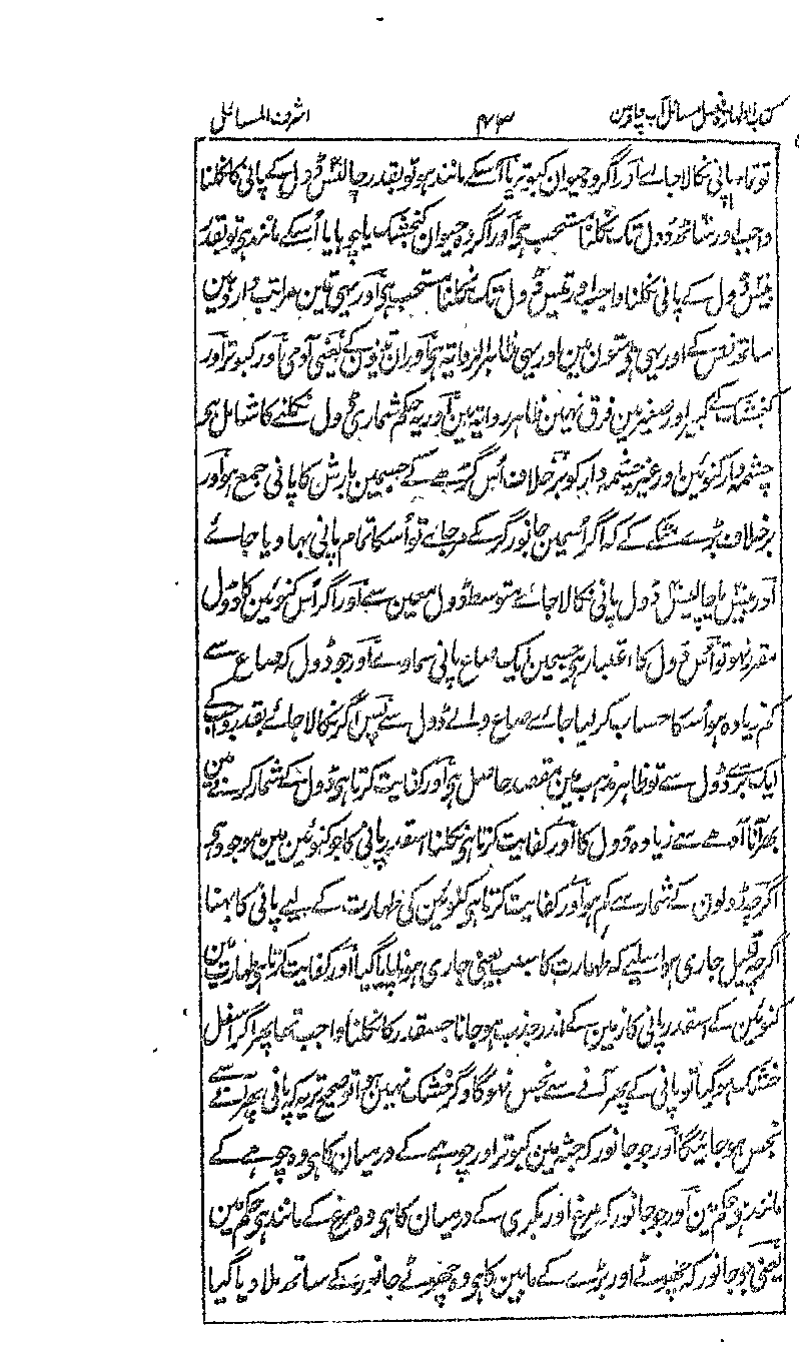 اشرف المسائل ۴۳ مسائل آب چاہ مین
تو تمام پانی نکالا جاے اور اگر وہ حیوان کبوتر یا اُسکے مانند ہو تو بقدر چالیس ڈول کے پانی کا نکلنا
واجب اور ساٹھ ڈول تک نکلنا مستحب ہی اور اگر وہ حیوان کنجشک یا چوہا یا اُسکے مانند ہی تو بقدر
بیس ڈول کے پانی نکلنا واجب اور تیس ڈول تک نکلنا مستحب ہی اور یہی تین مراتب وارد ہین
ساتھ نص کے اور یہی متون مین اور یہی ظاہر الروایۃ ہی اور ان تینون کے یعنی آدمی اور کبوتر اور
کنجشک کے کبیر اور صغیر مین فرق نہین ظاہر روایۃ مین اور یہ حکم شماری ڈول نکلنے کا شامل ہی
چشمہ دار کنوئین اور غیر چشمہ دار کو برخلاف اُس گڑھے کے جسمین بارش کا پانی جمع ہو اور
برخلاف بڑے مٹکے کے کہ اگر اُسمین جانور گر کے مرجاے تو اُسکا تمام پانی بہا دیا جائے
اور بیس یا چالیس ڈول پانی نکالا جاے متوسط ڈول معین سے اور اگر اُس کنوئین کا ڈول
مقرر نہو تو اُس ڈول کا اعتبار ہو جسمین ایک صاع پانی سماوے اور جو ڈول کہ صاع سے
کم زیادہ ہو اُسکا حساب کر لیا جائے صاع والے ڈول سے پس اگر نکالا جائے بقدر واجب کے
ایک بڑے ڈول سے تو ظاہر مذہب مین مقصد حاصل ہی اور کفایت کرتا ہی ڈول کے شمار کرنے مین
بھرآنا آدھے سے زیادہ ڈول کا اور کفایت کرتا ہی نکلنا اسقدر پانی کا جو کنوئین مین موجود ہی
اگرچہ ڈولون کے شمار سے کم ہو اور کفایت کرتا ہی کنوئین کی طہارت کے لیے پانی کا بہنا
اگرچہ قلیل جاری ہو اسلیے کہ طہارت کا سبب یعنی جاری ہونا پایا گیا اور کفایت کرتا ہی طہارت مین
کنوئین کے اسقدر پانی کا زمین کے اندر جذب ہو جانا جسقدر کا نکلنا واجب تھا پھر اگر اسفل
خشک ہو گیا تو پانی کے پھر آنے سے نجس نہوگا وگر خشک نہین ہوا تو صحیح تر یہ کہ پانی پھر آنے سے
نجس ہو جائیگا اور جو جانور کہ جثہ مین کبوتر اور چوہے کے درمیان کا ہی وہ چوہے کے
مانند ہی حکم مین اور جو جانور کہ مرغ اور بکری کے درمیان کا ہی وہ مرغ کے مانند ہی حکم مین
یعنی جو جانور کہ چھوٹے اور بڑے کے مابین کا ہی وہ چھوٹے جانور کے ساتھ ملا دیا گیا